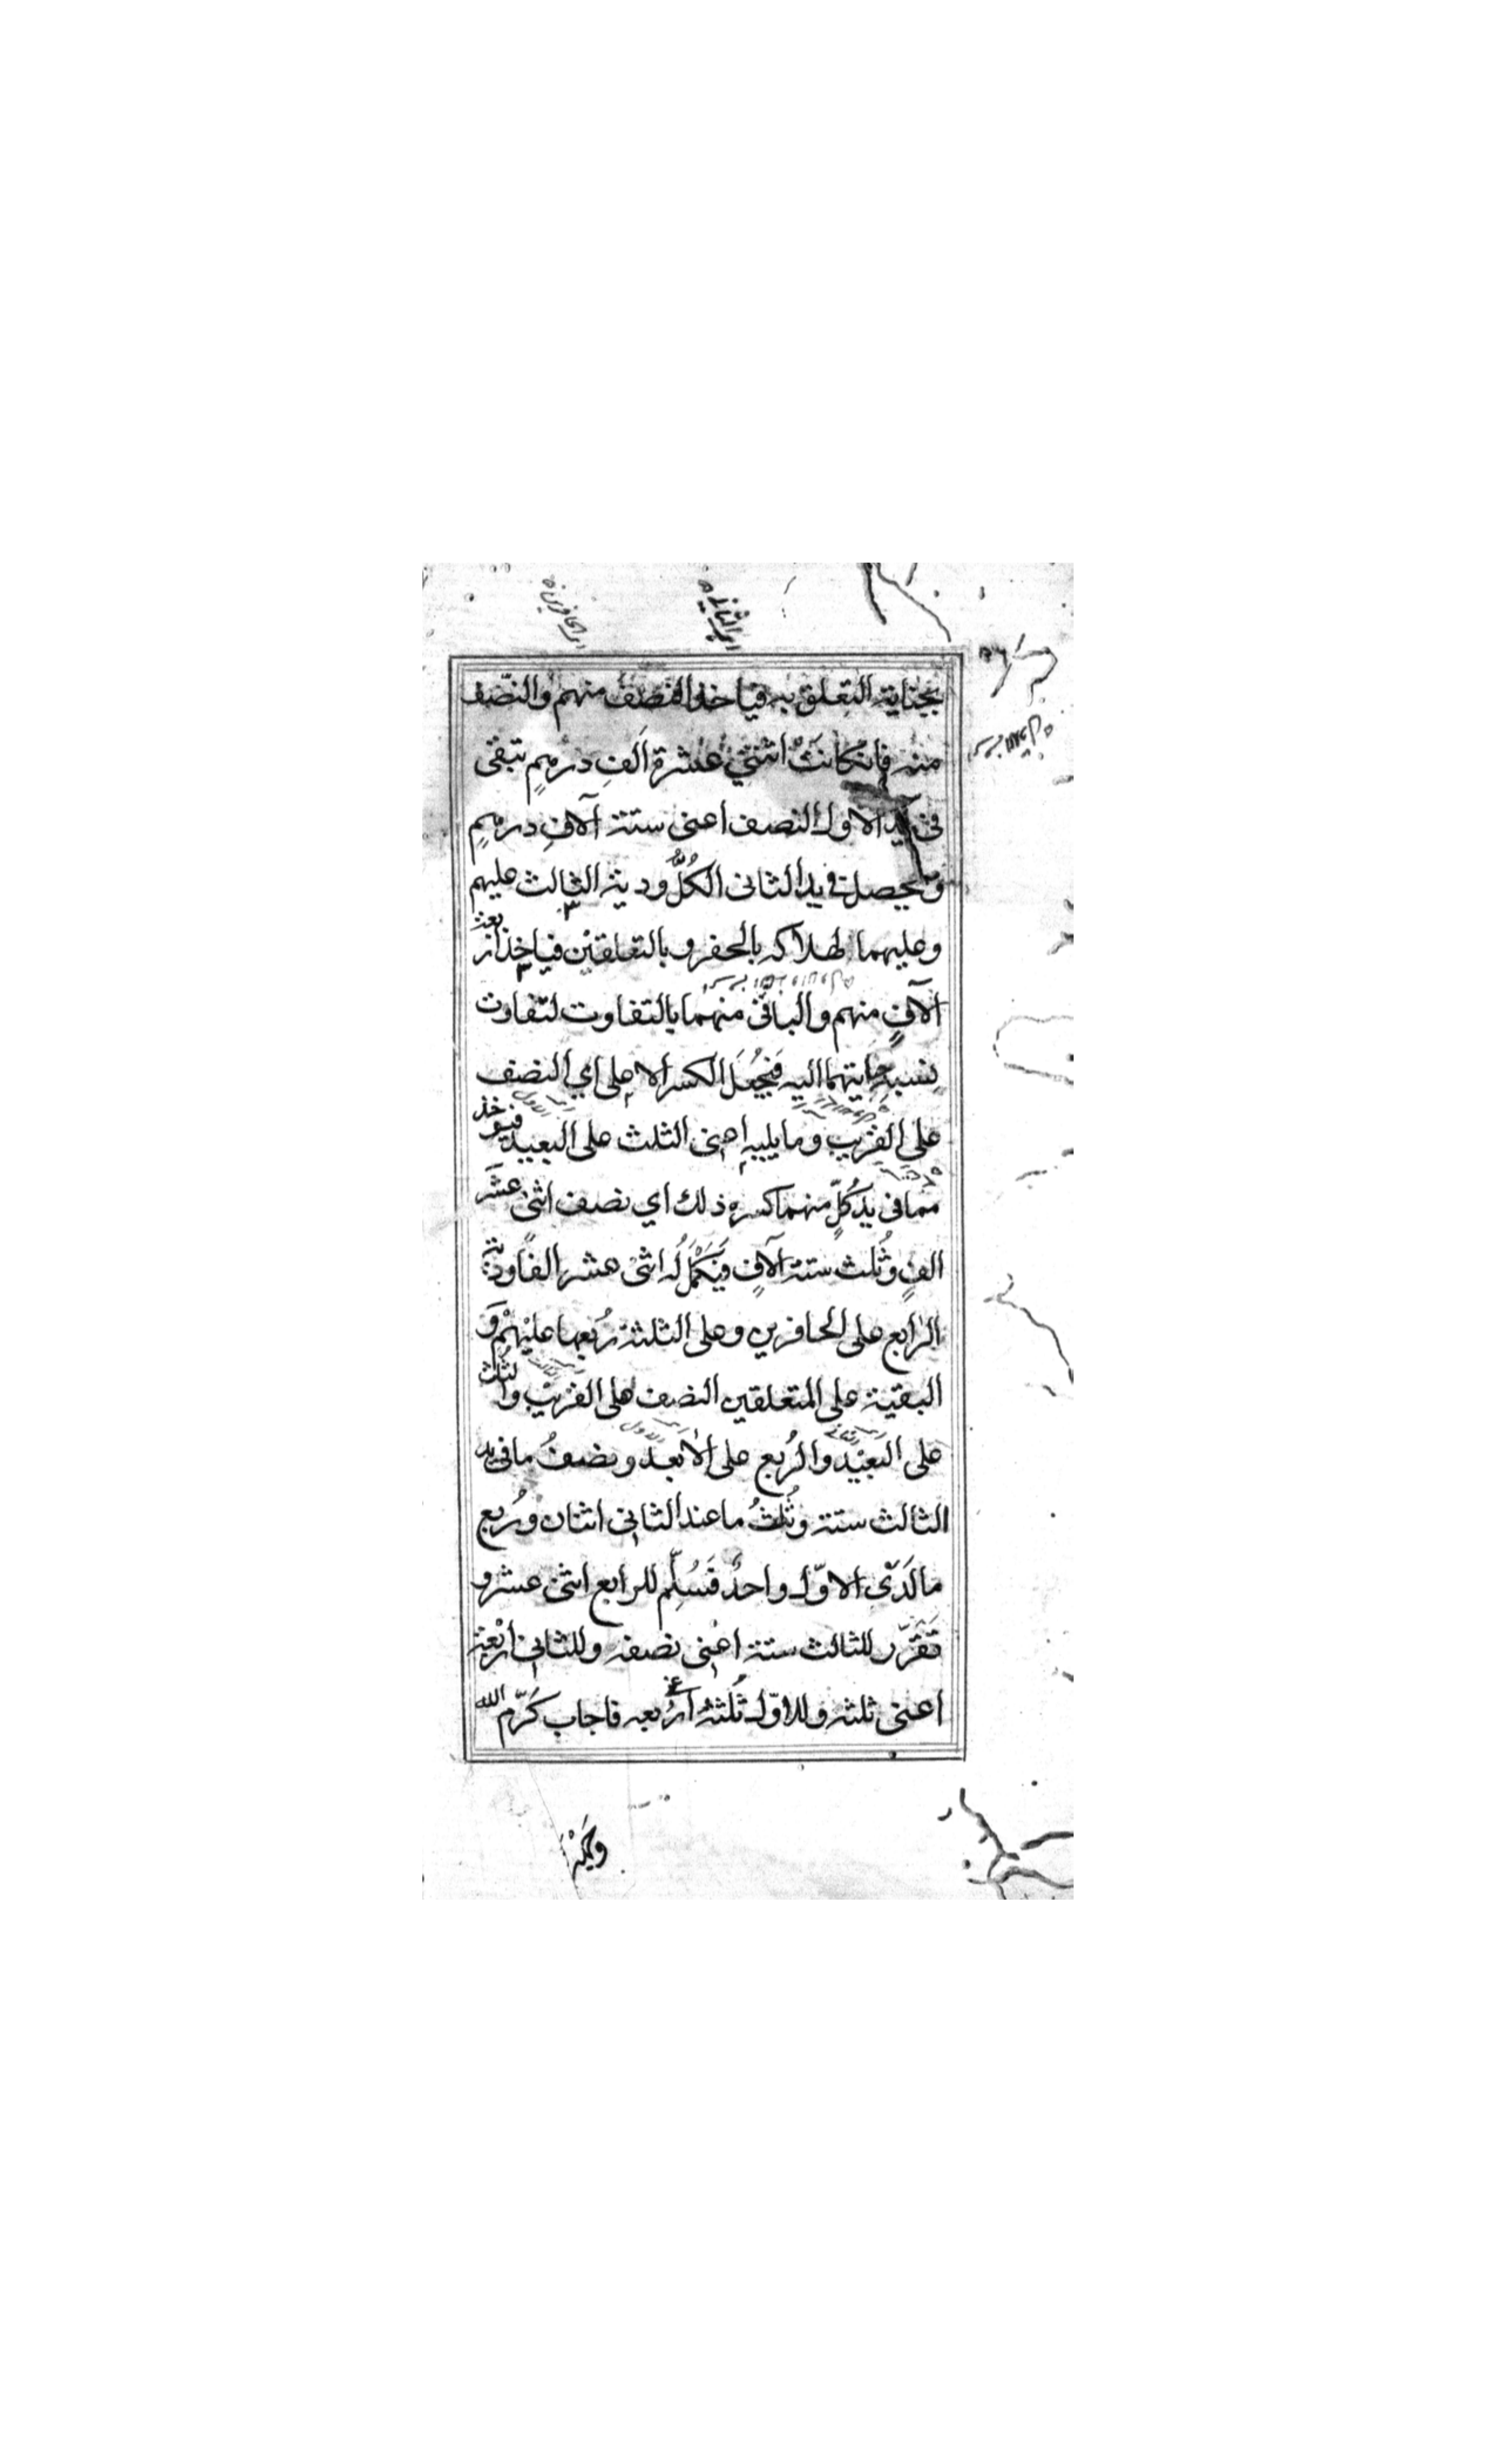 اي الثانية
اي الحافرين
بجناية التعلق به فياخذ النصف منهم والنصف
منه فان كانت اثنتي عشرة الف درهم تبقى
في يد الاول النصف اعنى ستة آلاف درهم
ويحصل في يد الثانى الكُلُّ ودية الثالث عليهم
وعليهما لهلاكه بالحفر وبالتعلقين فياخذ اربعة
آلافٍ منهم والباقى منهما بالتفاوت لتفاوت
نسبة جنايتهما اليه فيُجعَل الكسر الاعلى اي النصف
على القريب وما يليه اعنى الثلث على البعيد فيؤخذ
مما فى يد كُلٍّ منهما كسره ذلك اي نصف اثنى عشَر
الفٍ وثُلث ستة آلافٍ فيَكْمَل له اثنى عشر الفًا ودية
الرابع على الحافرين وعلى الثلثة رُبعها عليهِمْ وَ
البقية على المتعلقين النصف على القريب والثُلث
على البعيد والرُبع على الابعد ونصفُ ما فى يد
الثالث ستة وثُلثُ ما عند الثانى اثنان ورُبع
ما لَدَى الاوّل واحدٌ فَسُلِّم للرابع اثنى عشر و
تَقَرّر للثالث ستة اعنى نصفه وللثانى اربعة
اعنى ثلثه وللاوّل ثُلثة ارُبعه فاجاب كَرّم الله
وجهه